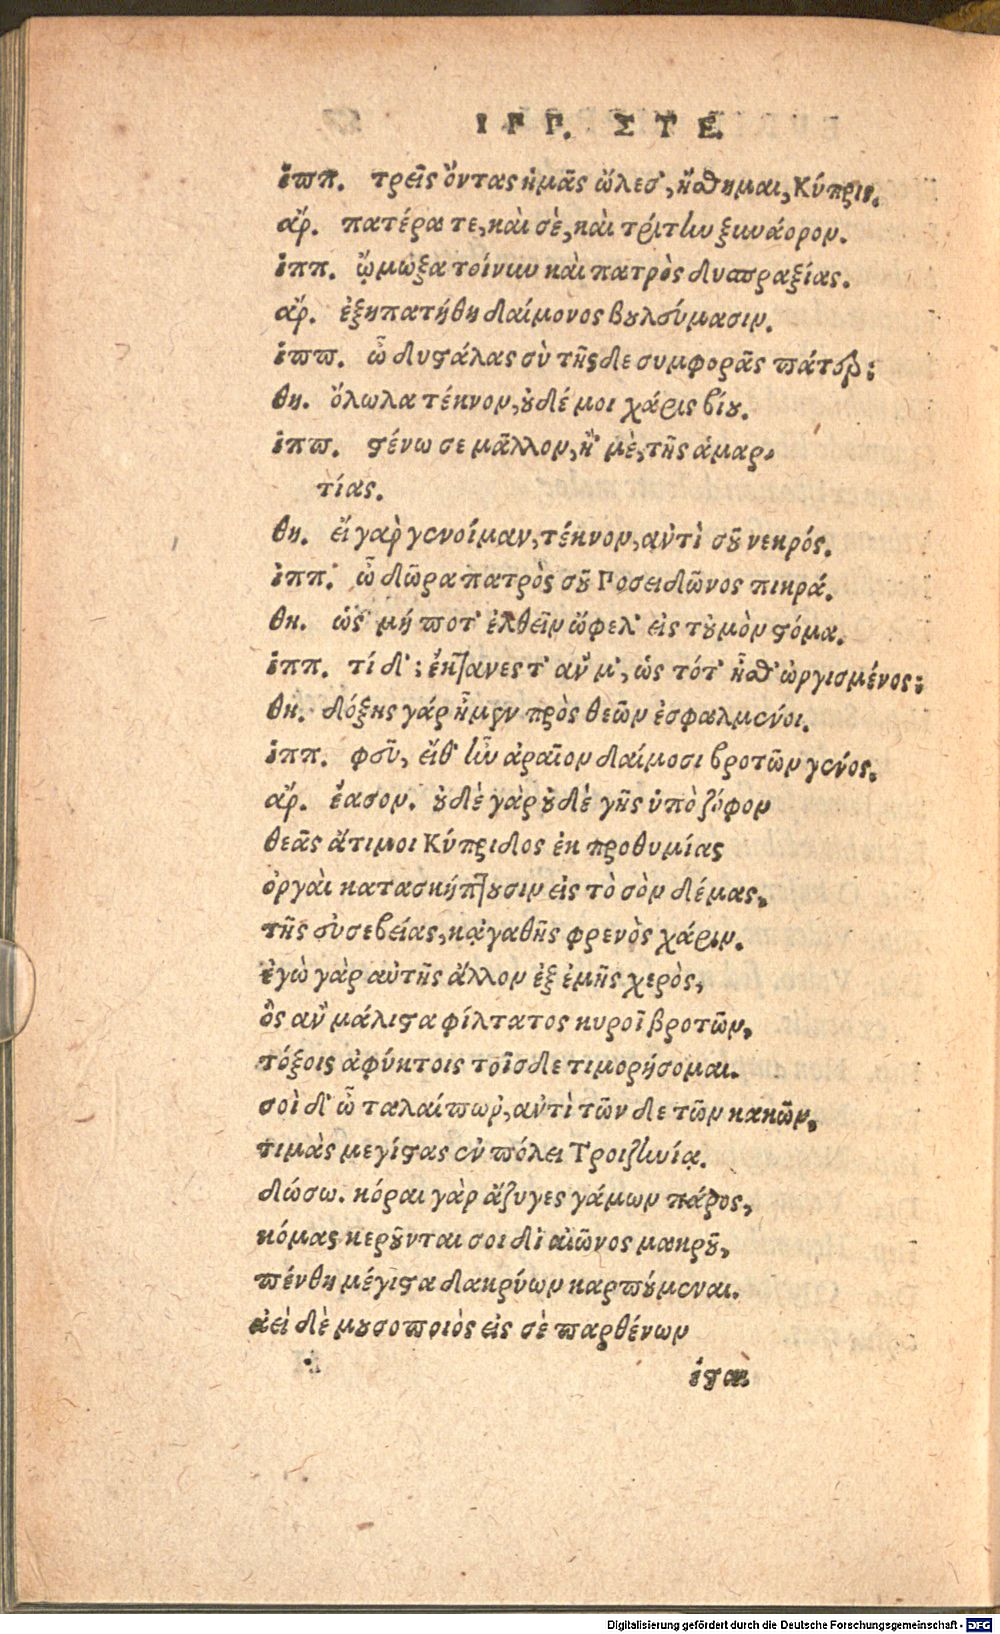 ΙΠΠ. ΣΤΕ.
ἱππ. τρεῖς ὄντας ἡμᾶς ὤλεσ', ᾔσθημαι, Κύπρις.
ἄρ. πατέρα τε, καὶ σὲ, καὶ τρίτην ξυνάορον.
ἱππ. ᾤμωξα τοίνυν καὶ πατρὸς δυσπραξίας.
ἄρ. ἐξηπατήθη δαίμονος βουλεύμασιν.
ἱππ. ὦ δυστάλας σὺ τῆςδε συμφορᾶς πάτερ;
θη. ὄλωλα τέκνον, οὐδέ μοι χάρις βίου.
ἱππ. στένω σε μᾶλλον, ἢ 'μὲ, τῆς ἁμαρ-
τίας.
θη. εἴ γὰρ γενοίμαν, τέκνον, ἀντὶ σοῦ νεκρός.
ἱππ. ὦ δῶρα πατρὸς σοῦ Ποσειδῶνος πικρά.
θη. ὡς μή ποτ' ἐλθεῖν ὤφελ' εἰς τοὐμὸν στόμα.
ἱππ. τί δ'; ἔκτανες τ' ἄν μ', ὡς τότ' ἦσθ' ὠργισμένος;
θη. δόξης γάρ ἦμεν πρὸς θεῶν ἐσφαλμένοι.
ἱππ. φεῦ, εἴθ' ἦν ἀραῖον δαίμοσι βροτῶν γένος.
ἄρ. ἔασον. οὐδὲ γὰρ οὐδὲ γῆς ὑπὸ ζόφον
θεᾶς ἄτιμοι Κύπριδος ἐκ προθυμίας
ὀργαὶ κατασκήπτουσιν εἰς τὸ σὸν δέμας,
τῆς εὐσεβείας, κἀγαθῆς φρενὸς χάριν.
ἐγὼ γὰρ αὐτῆς ἄλλον ἐξ ἐμῆς χερὸς,
ὃς ἂν μάλιστα φίλτατος κυροῖ βροτῶν,
τόξοις ἀφύκτοις τοῖσδε τιμορήσομαι.
σοὶ δ' ὦ ταλαίπωρ', ἀντὶ τῶν δε τῶν κακῶν,
τιμὰς μεγίστας ἐν πόλει Τροιζηνίᾳ.
δώσω. κόραι γὰρ ἄζυγες γάμων πάρος,
κόμας κεροῦνται σοι δι' αἰῶνος μακροῦ,
πένθη μέγιστα δακρύων καρπούμεναι.
ἀεὶ δὲ μουσοποιὸς εἰς σὲ παρθένων
ἔσται
Digitalisierung gefördert durch die Deutsche Forschungsgemeinschaft - DFG